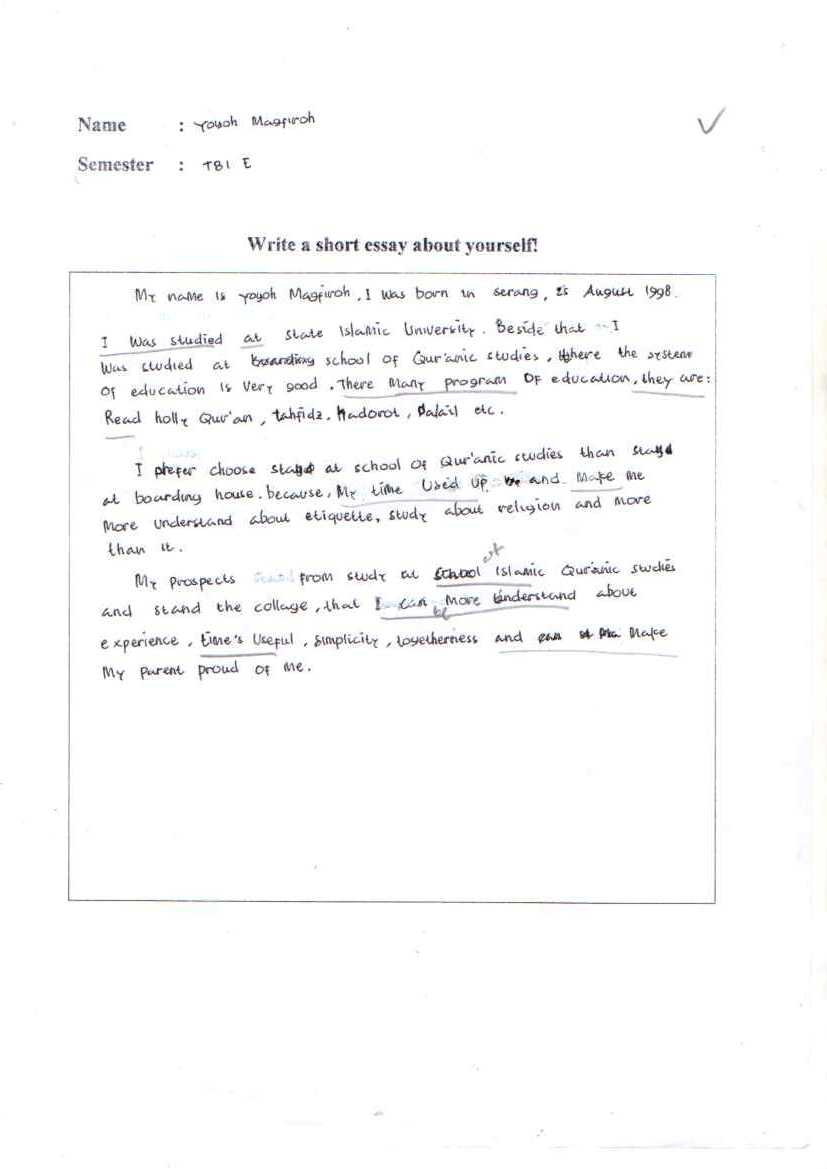 Name : Yoyoh Magfiroh
Semester : TBI E
Write a short essay about yourself!
My name is Yoyoh Magfiroh, I was born in serang, August 1998.
I was studied at state Islamic University. Beside that I
was studied at boarding school of Qur'anic studies, where the system
of education is very good. There many program of education, they are:
Read holly Qur'an, tahfidz, Hadorot, Dalail etc.
I prefer choose stayed at school of Qur'anic studies than stayd
at boarding house. because, My time used up and make me
more understand about etiquette, study about religion and more
than it.
My prospects from study at school of Islamic Quranic studies
and stand the collage, that I can be more understand about
experience, time's useful, simplicity, togetherness and make
My parent proud of me.